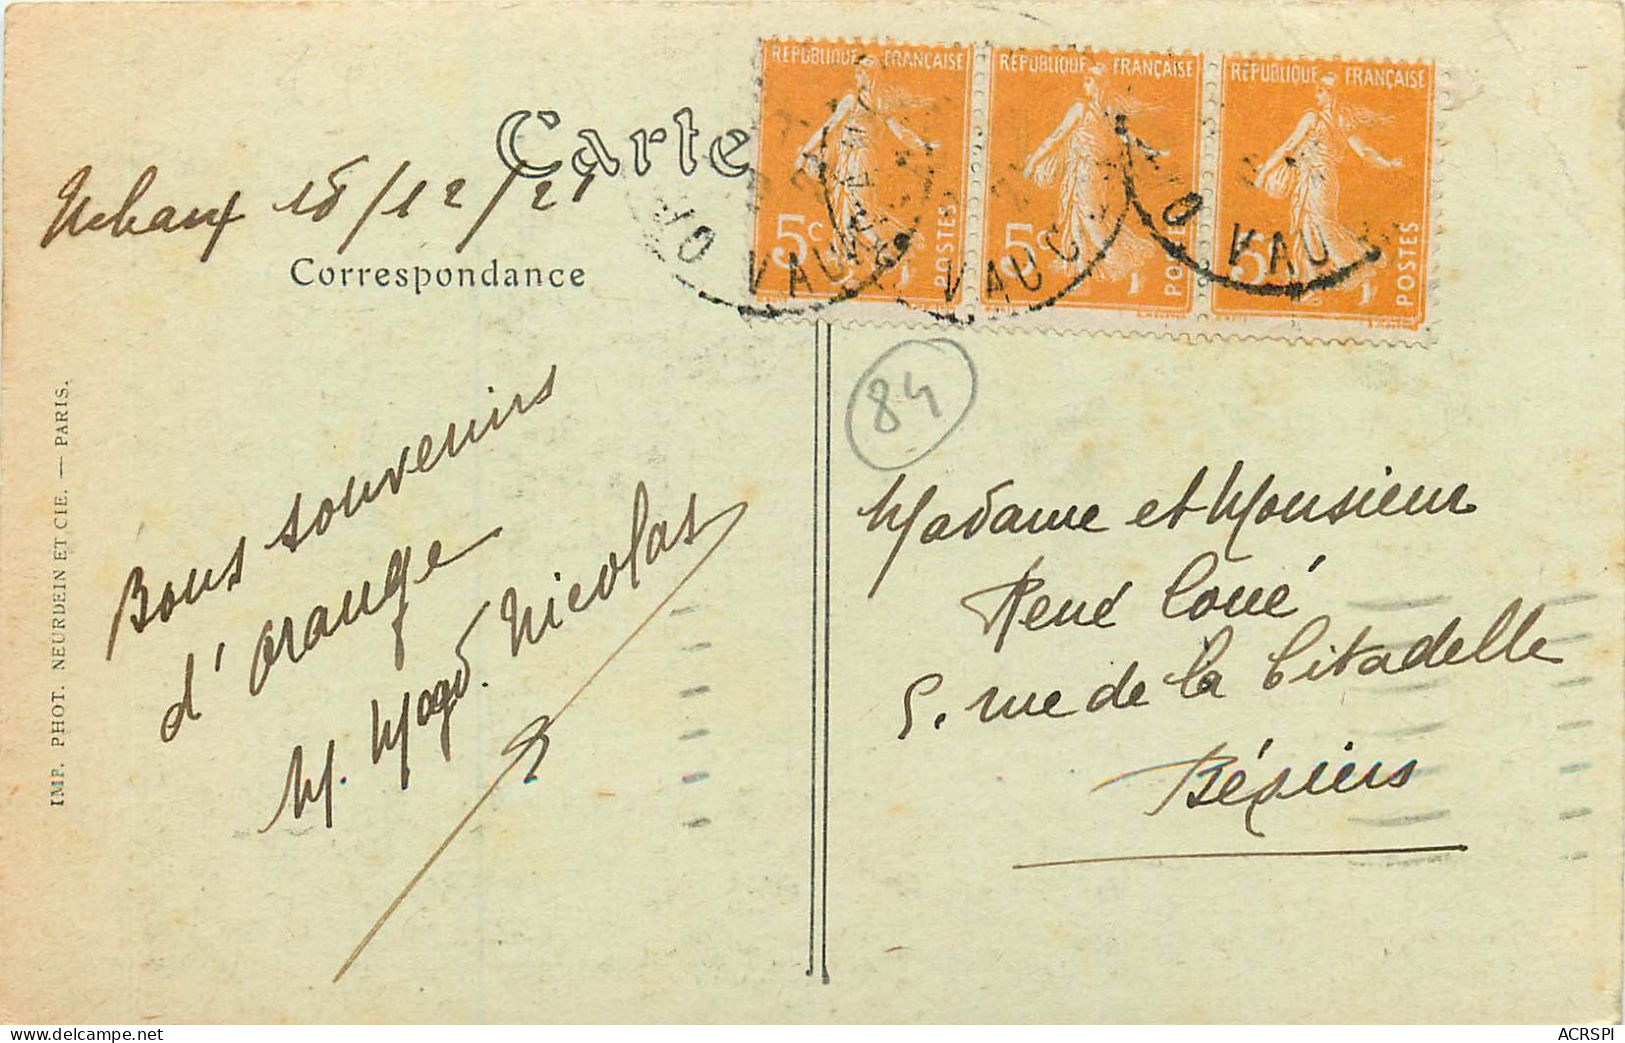 Carte
Uchaux 18/12/21
Correspondance
Bons souvenirs
d'orange
M. Magd. Nicolas
IMP. PHOT. NEURDEIN ET CIE. — PARIS.
RÉPUBLIQUE FRANÇAISE
5c
POSTES
RÉPUBLIQUE FRANÇAISE
5c
POSTES
RÉPUBLIQUE FRANÇAISE
5c
POSTES
VAUC
VAUC
VAU
84
Madame et Monsieur
René Coué
5. rue de la Citadelle
Béziers
delcampe.net
ACRSPI